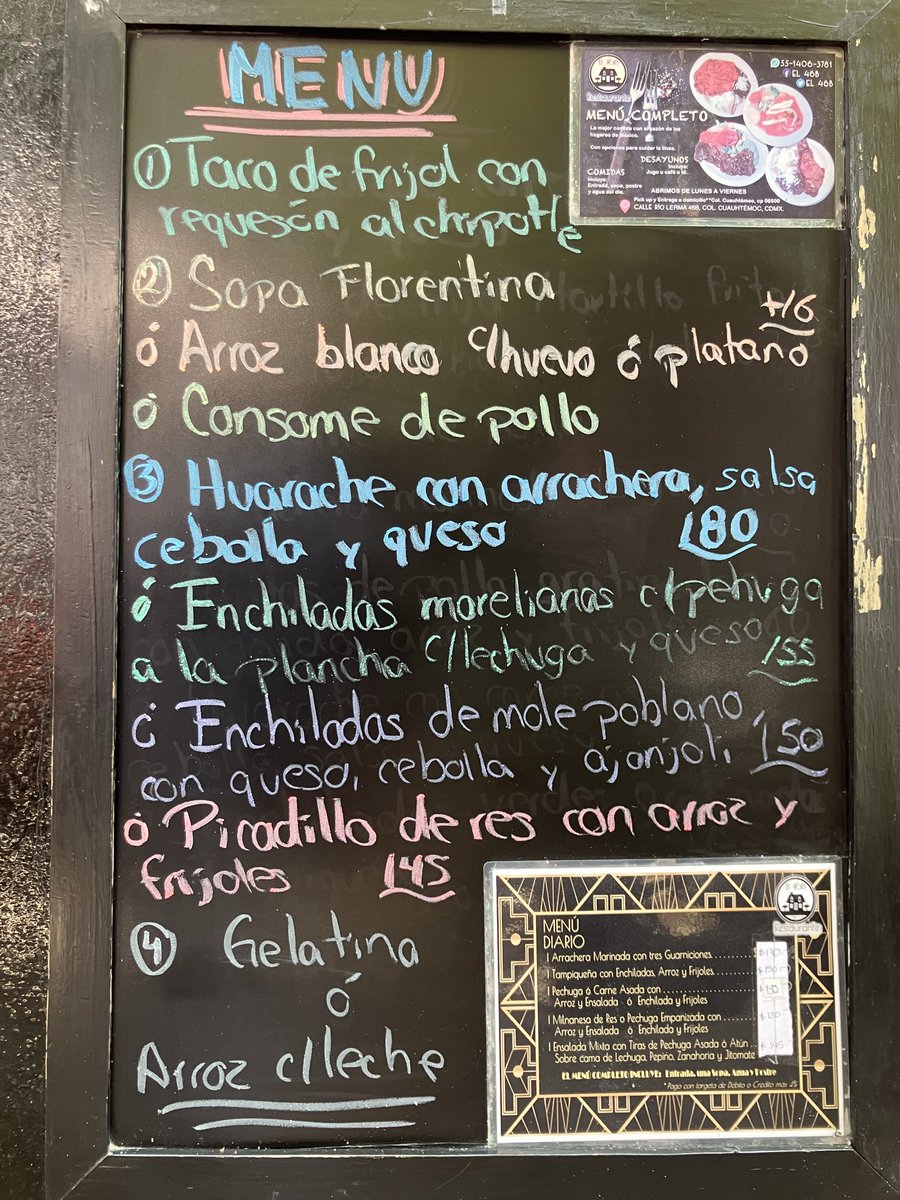 MENU
① Taco de frijol con
requesón al chipotle
② Sopa Florentina
+16
ó Arroz blanco c/huevo ó platano
ó Consome de pollo
③ Huarache con arrachera, salsa
cebolla y queso 180
ó Enchiladas morelianas c/pehuga
a la plancha c/lechuga y queso 155
ó Enchiladas de mole poblano,
con queso, cebolla y ajonjoli, 150
ó Picadillo de res con arroz y
frijoles 145
④ Gelatina
ó
Arroz c/leche
Restaurante
55-1406-3781
EL 46B
EL 46B
MENÚ COMPLETO
La mejor comida con sazón de los
hogares de México.
Con opciones para cuidar la línea.
DESAYUNOS
Incluye:
Jugo u café o té.
COMIDAS
Incluye:
Entrada, sopa, postre
y agua del día.
ABRIMOS DE LUNES A VIERNES
Pick up y Entrega a domicilio**Col. Cuauhtémoc, cp 06500
CALLE RÍO LERMA 46B, COL. CUAUHTÉMOC, CDMX.
Restaurante
MENÚ
DIARIO
1 Arrachera Marinada con tres Guarniciones
1 Tampiqueña con Enchiladas, Arroz y Frijoles $150
1 Pechuga ó Carne Asada con
Arroz y Ensalada ó Enchilada y Frijoles
1 Milnanesa de Res o Pechuga Empanizada con $150
Arroz y Ensalada ó Enchilada y Frijoles
1 Ensalada Mixta con Tiras de Pechuga Asada ó Atún $145
Sobre cama de Lechuga, Pepino, Zanahoria y Jitomate
EL MENÚ COMPLETO INCLUYE: Entrada, una Sopa, Agua y Postre
*Pago con targeta de Débito o Credito más 2%